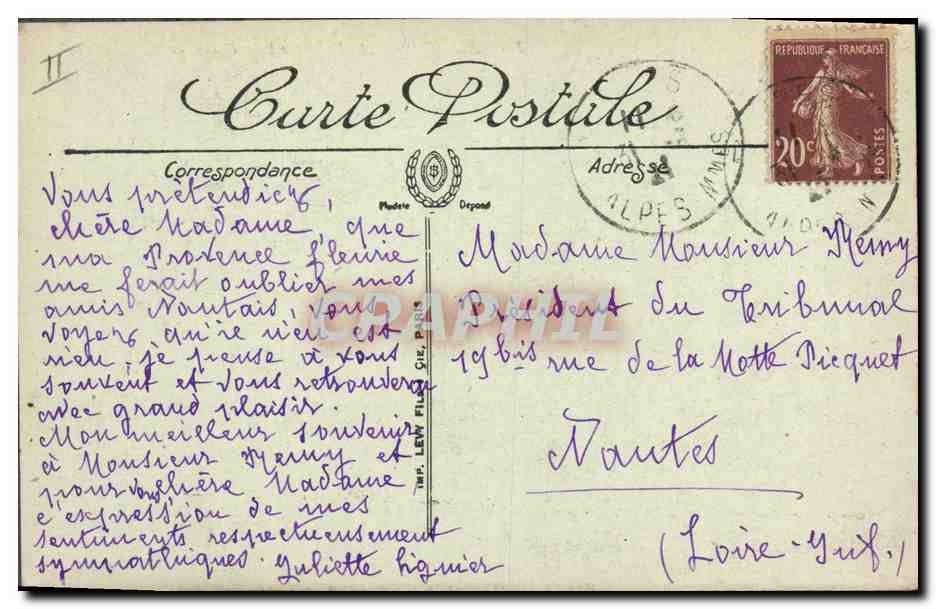 II
Carte Postale
Correspondance
Adresse
Modèle Déposé
REPUBLIQUE FRANÇAISE
20c
POSTES
ALPES MMES
ALPES M
Vous prétendiez,
chère Madame, que
ma Provence fleurie
me ferait oublier mes
amis Nantais, vous
voyez qu'il n'en est
rien, je pense à vous
souvent et vous retrouverai
avec grand plaisir.
Mon meilleur souvenir
à Monsieur Remy et
pour vous chère Madame
l'expression de mes
sentiments respectueusement
sympathiques. Juliette Lignier
IMP. LEVY FILS & CIE, PARIS
Madame Monsieur Remy
Président du Tribunal
19 bis rue de la Motte Picquet
Nantes
(Loire-Inf.)
CPAPHIL